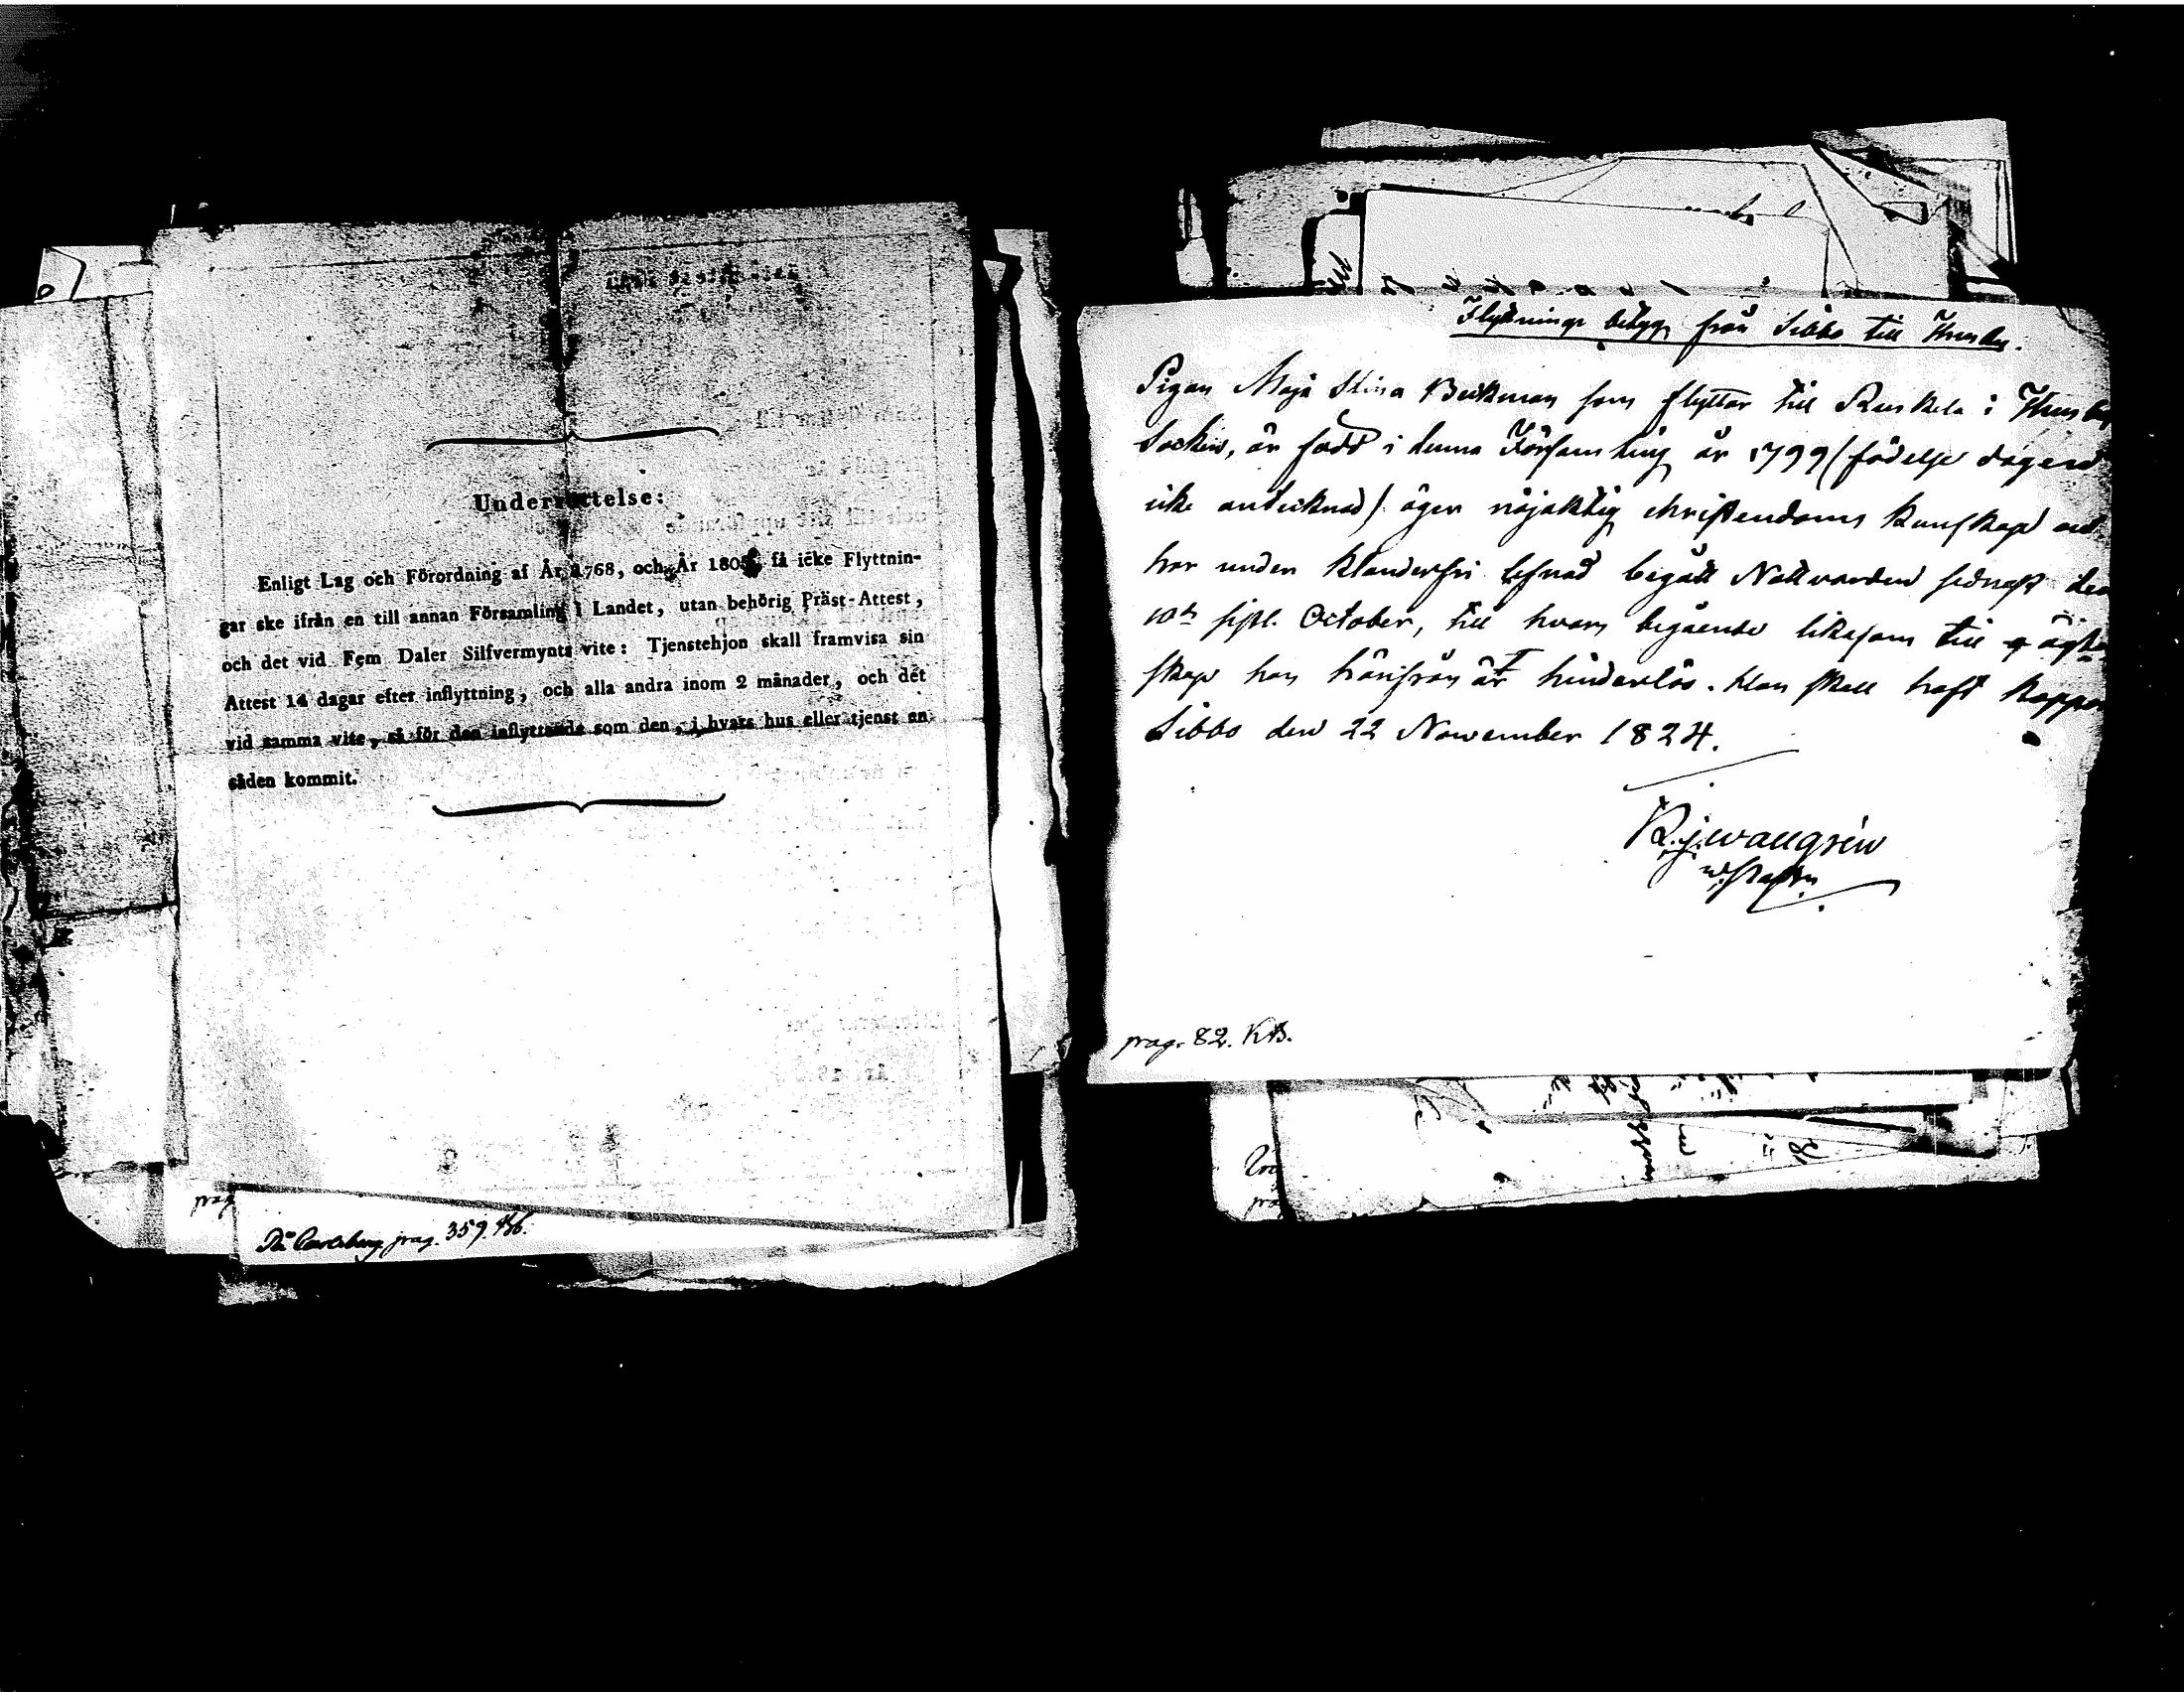 Underrättelse:
Enligt Lag och Förordning af År 1768, och År 1805, få icke Flyttnin-
gar ske ifrån en till annan Församling i Landet, utan behörig Präst-Attest,
och det vid Fem Daler Silfvermynts vite: Tjenstehjon skall framvisa sin
Attest 14 dagar efter inflyttning, och alla andra inom 2 månader, och det
vid samma vite, så för den inflyttande som den, i hvars hus eller tjenst en
såden kommit.
prag
På Carlsberg prag. 359.
Flyttnings betyg från Sibbo till
Pigan Maja Stina Beckman som flyttar till i
Socken, är född i denna Församling år 1799 (födelse dagen
icke antecknad) äger nöjaktig christendoms kunskap och
har under klanderfri lefnad begått Nattvarden sednast den
10de sistl. October, till hvars begående likasom till ägte
skap hon härifrån är hinderlös. Hon skall haft koppor
Sibbo den 22 November 1824.
K.J. Wallgrén
prag. 82. Kb.